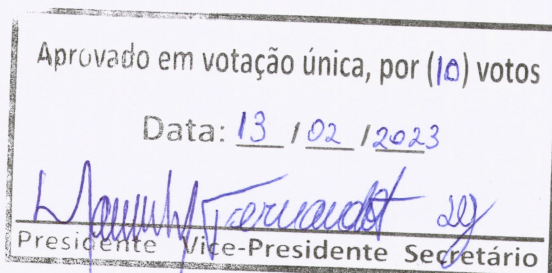 Aprovado em votação única, por (10) votos
Data: 13 / 02 / 2023
Fernandes
Presidente Vice-Presidente Secretário